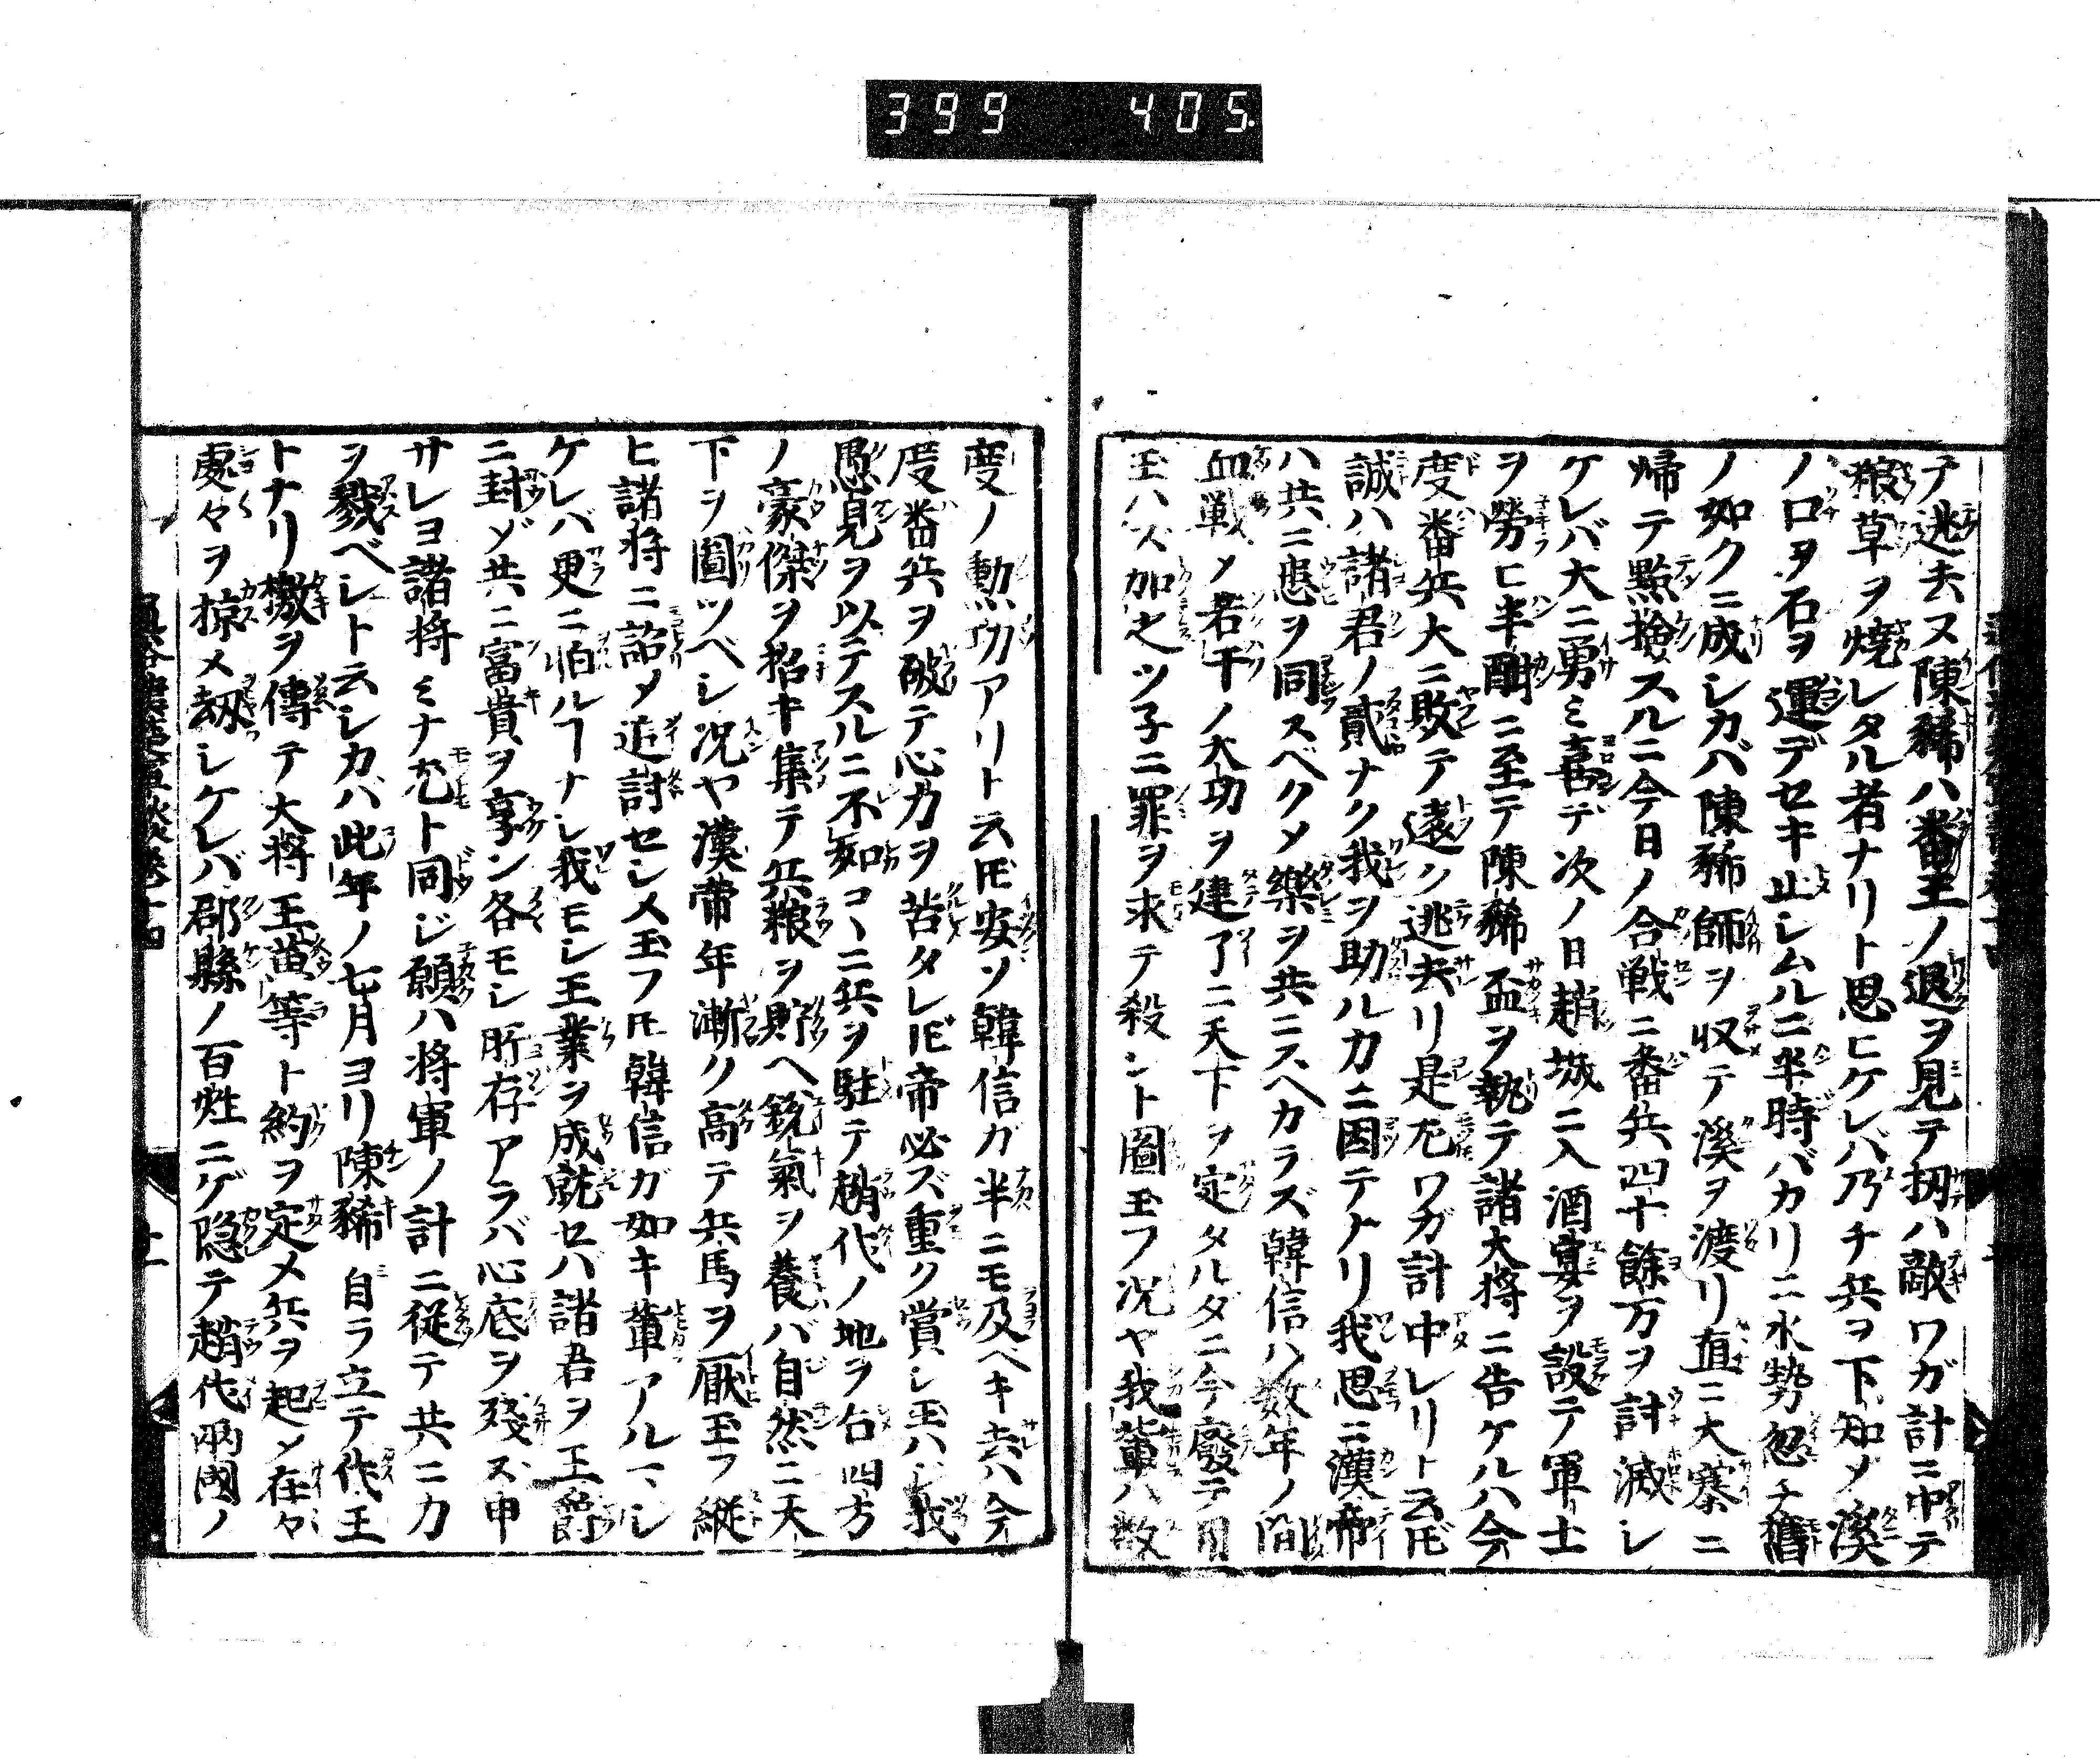 399 405.
テ逃去ヌ陳豨ハ番王ノ退ヲ見テ扨ハ敵ワガ計ニ中テ
粮草ヲ燒レタル者ナリト思ヒケレバ乃チ兵ヲ下知メ溪
ノ口ヲ石ヲ運デセキ止レムルニ半時バカリニ水勢忽チ舊
ノ如クニ成シカバ陳豨師ヲ収テ溪ヲ渡リ直ニ大寨ニ
帰テ點撿スルニ今日ノ合戦ニ番兵四十餘万ヲ討滅レ
ケレバ大ニ勇ミ喜デ次ノ日趙城ニ入酒宴ヲ設テ軍士
ヲ勞ヒ半酣ニ至テ陳豨盃ヲ執テ諸大将ニ告ケルハ今
度番兵大ニ敗テ遠ク逃去リ是尤ワガ計中レリト云𪜈
誠ハ諸君ノ貳ナク我ヲ助ルカニ因テナリ我思ニ漢帝
ハ共ニ患ヲ同スベクメ樂ヲ共ニスヘカラズ韓信ハ数年ノ間
血戦メ若干ノ大功ヲ建了ニ天下ヲ定タルダニ今廢テ用
玉ハス加之ツ子ニ罪ヲ求テ殺ント圖玉フ况ヤ我輩ハ数
度ノ勲功アリト云𪜈安ソ韓信ガ半ニモ及ヘキ去ハ今
度番兵ヲ破テ心力ヲ苦タレ𪜈帝必ズ重ク賞シ玉ハジ我
愚見ヲ以テスルニ不如コヽニ兵ヲ駐テ趙代ノ地ヲ占四方
ノ豪傑ヲ招キ集テ兵粮ヲ貯ヘ鋭氣ヲ養バ自然ニ天
下ヲ圖ツベシ况ヤ漢帝年漸ク高テ兵馬ヲ厭玉フ縦
ヒ諸将ニ詔メ追討セシメ玉フ𪜈韓信ガ如キ輩アルマシ
ケレバ更ニ怕ルヿナシ我モシ王業ヲ成就セハ諸君ヲ王爵
ニ封ゾ共ニ富貴ヲ享ン各モシ所存アラバ心底ヲ殘ズ申
サレヨ諸将ミナ尤ト同ジ願ハ将軍ノ計ニ從テ共ニ力
ヲ戮ベレト云シカハ此年ノ七月ヨリ陳豨自ラ立テ代王
トナリ檄ヲ傳テ大将王黄等ト約ヲ定メ兵ヲ起メ在々
處々ヲ掠メ刼シケレバ郡縣ノ百姓ニゲ隠テ趙代兩國ノ